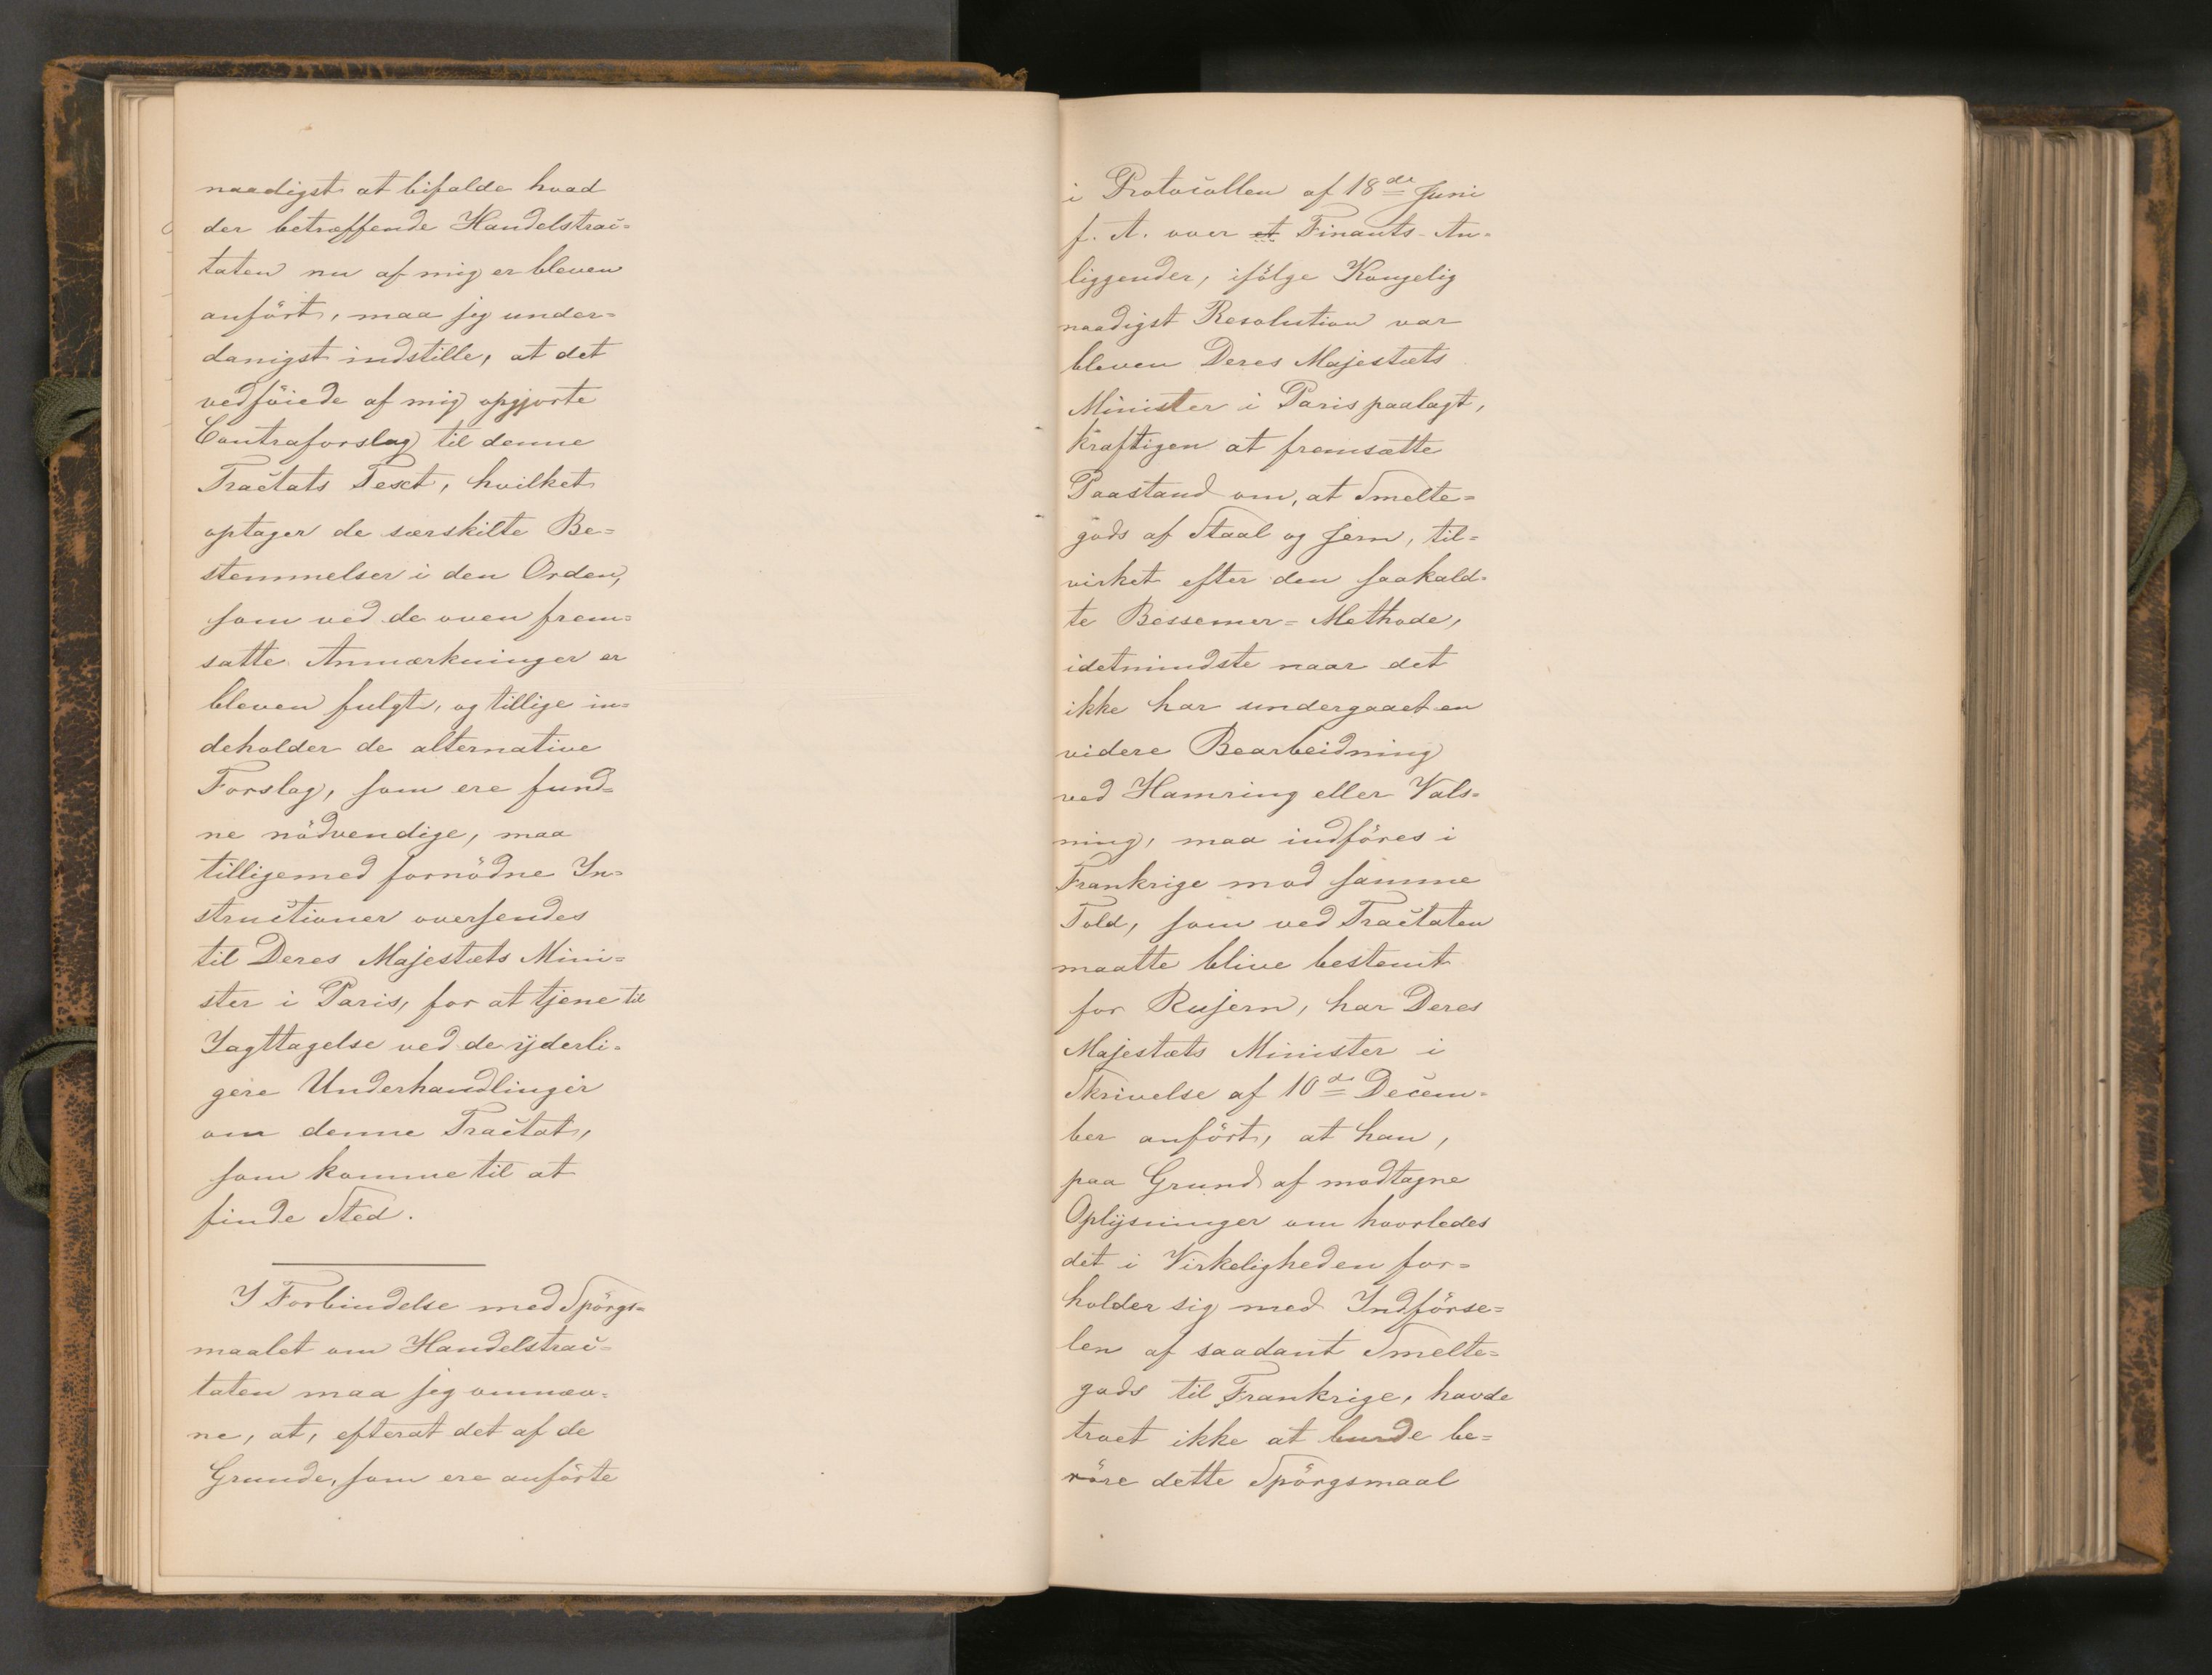 naadigst at bifalde hvad
der betræffende Handelstrac=
taten nu af mig er bleven
anfört, maa jeg under=
danigst indstille, at det
vedföiede af mig opgjorte
Contraforslag til denne
Tractats Text, hvilket
optager de særskilte Be=
stemmelser i den Orden,
som ved de oven frem=
satte Anmærkninger er
bleven fulgt, og tillige in=
deholder de alternative
Forslag, som ere fund=
ne nödvendige, maa
tilligemed fornödne In=
structioner oversendes
til Deres Majestæts Mini=
ster i Paris, for at tjene til
Iagttagelse ved de ÿderli=
gere Underhandlinger
om denne Tractat,
som komme til at
finde Sted.
I Forbindelse med Spörgs=
maalet om Handelstrac=
taten maa jeg omnæv=
ne, at, efterat det af de
Grunde, som ere anförte
i Protocollen af 18de Juni
f. A. over et Finants-An=
liggender, ifölge Kongelig
naadigst Resolution var
bleven Deres Majestæts
Minister i Paris paalagt,
kraftigen at fremsætte
Paastand om, at Smelte=
gods af Staal og Jern, til=
virket efter den saakald=
te Bessemer=Methode,
idetmindste naar det
ikke har undergaaet en
videre Bearbeidning
ved Hamring eller Vals=
ning, maa indföres i
Frankrige mod samme
Told, som ved Tractaten
maatte blive bestemt
for Rujern, har Deres
Majestæts Minister i
Skrivelse af 10de Decem=
ber anfört, at han,
paa Grund af modtagne
Oplÿsninger om hvorledes
det i Virkeligheden for=
holder sig med Indförse=
len af saadant Smelte=
gods til Frankrige, havde
troet ikke at burde be=
röre dette Spörgsmaal